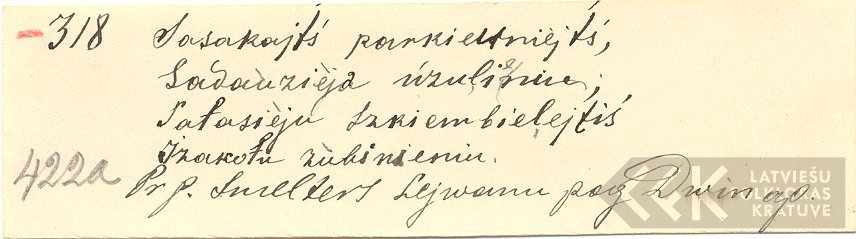 -318 Sasakajtś parkiutniejtś,
Sadauzieja úzuliniu;
Pałasieju szkiembielejtiś
Izakołu zubinieniu.
422a
Pr P. Smelters Lejwanu pog Dwin ap.
LATVIEŠU
FOLKLORAS
KRĀTUVE